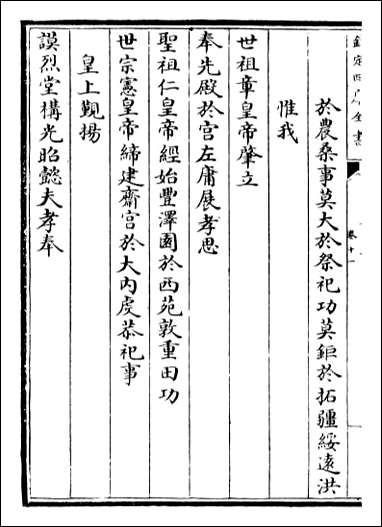 欽定四庫全書
卷十一
於農桑事莫大於祭祀功莫鉅於拓疆綏遠洪
惟我
世祖章皇帝肇立
奉先殿於宮左庸展孝思
聖祖仁皇帝經始豐澤園於西苑敦重田功
世宗憲皇帝締建齋宮於大內虔恭祀事
皇上覲揚
謨烈堂構光昭懿夫孝奉